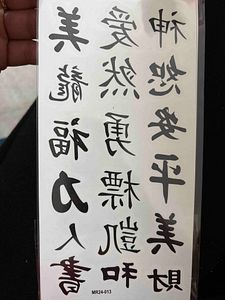 美 愛 神
龍 然 恕
福 勇 安
力 標 平
人 凱 美
書 和 財
MR24-013